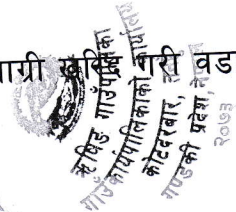 ाग्री खरिद गरी वड
ऋषिङ गाउँपालिका
गाउँ कार्यपालिकाको कार्यालय
कोटदरबार,
गण्डकी प्रदेश, नेपाल
२०७३